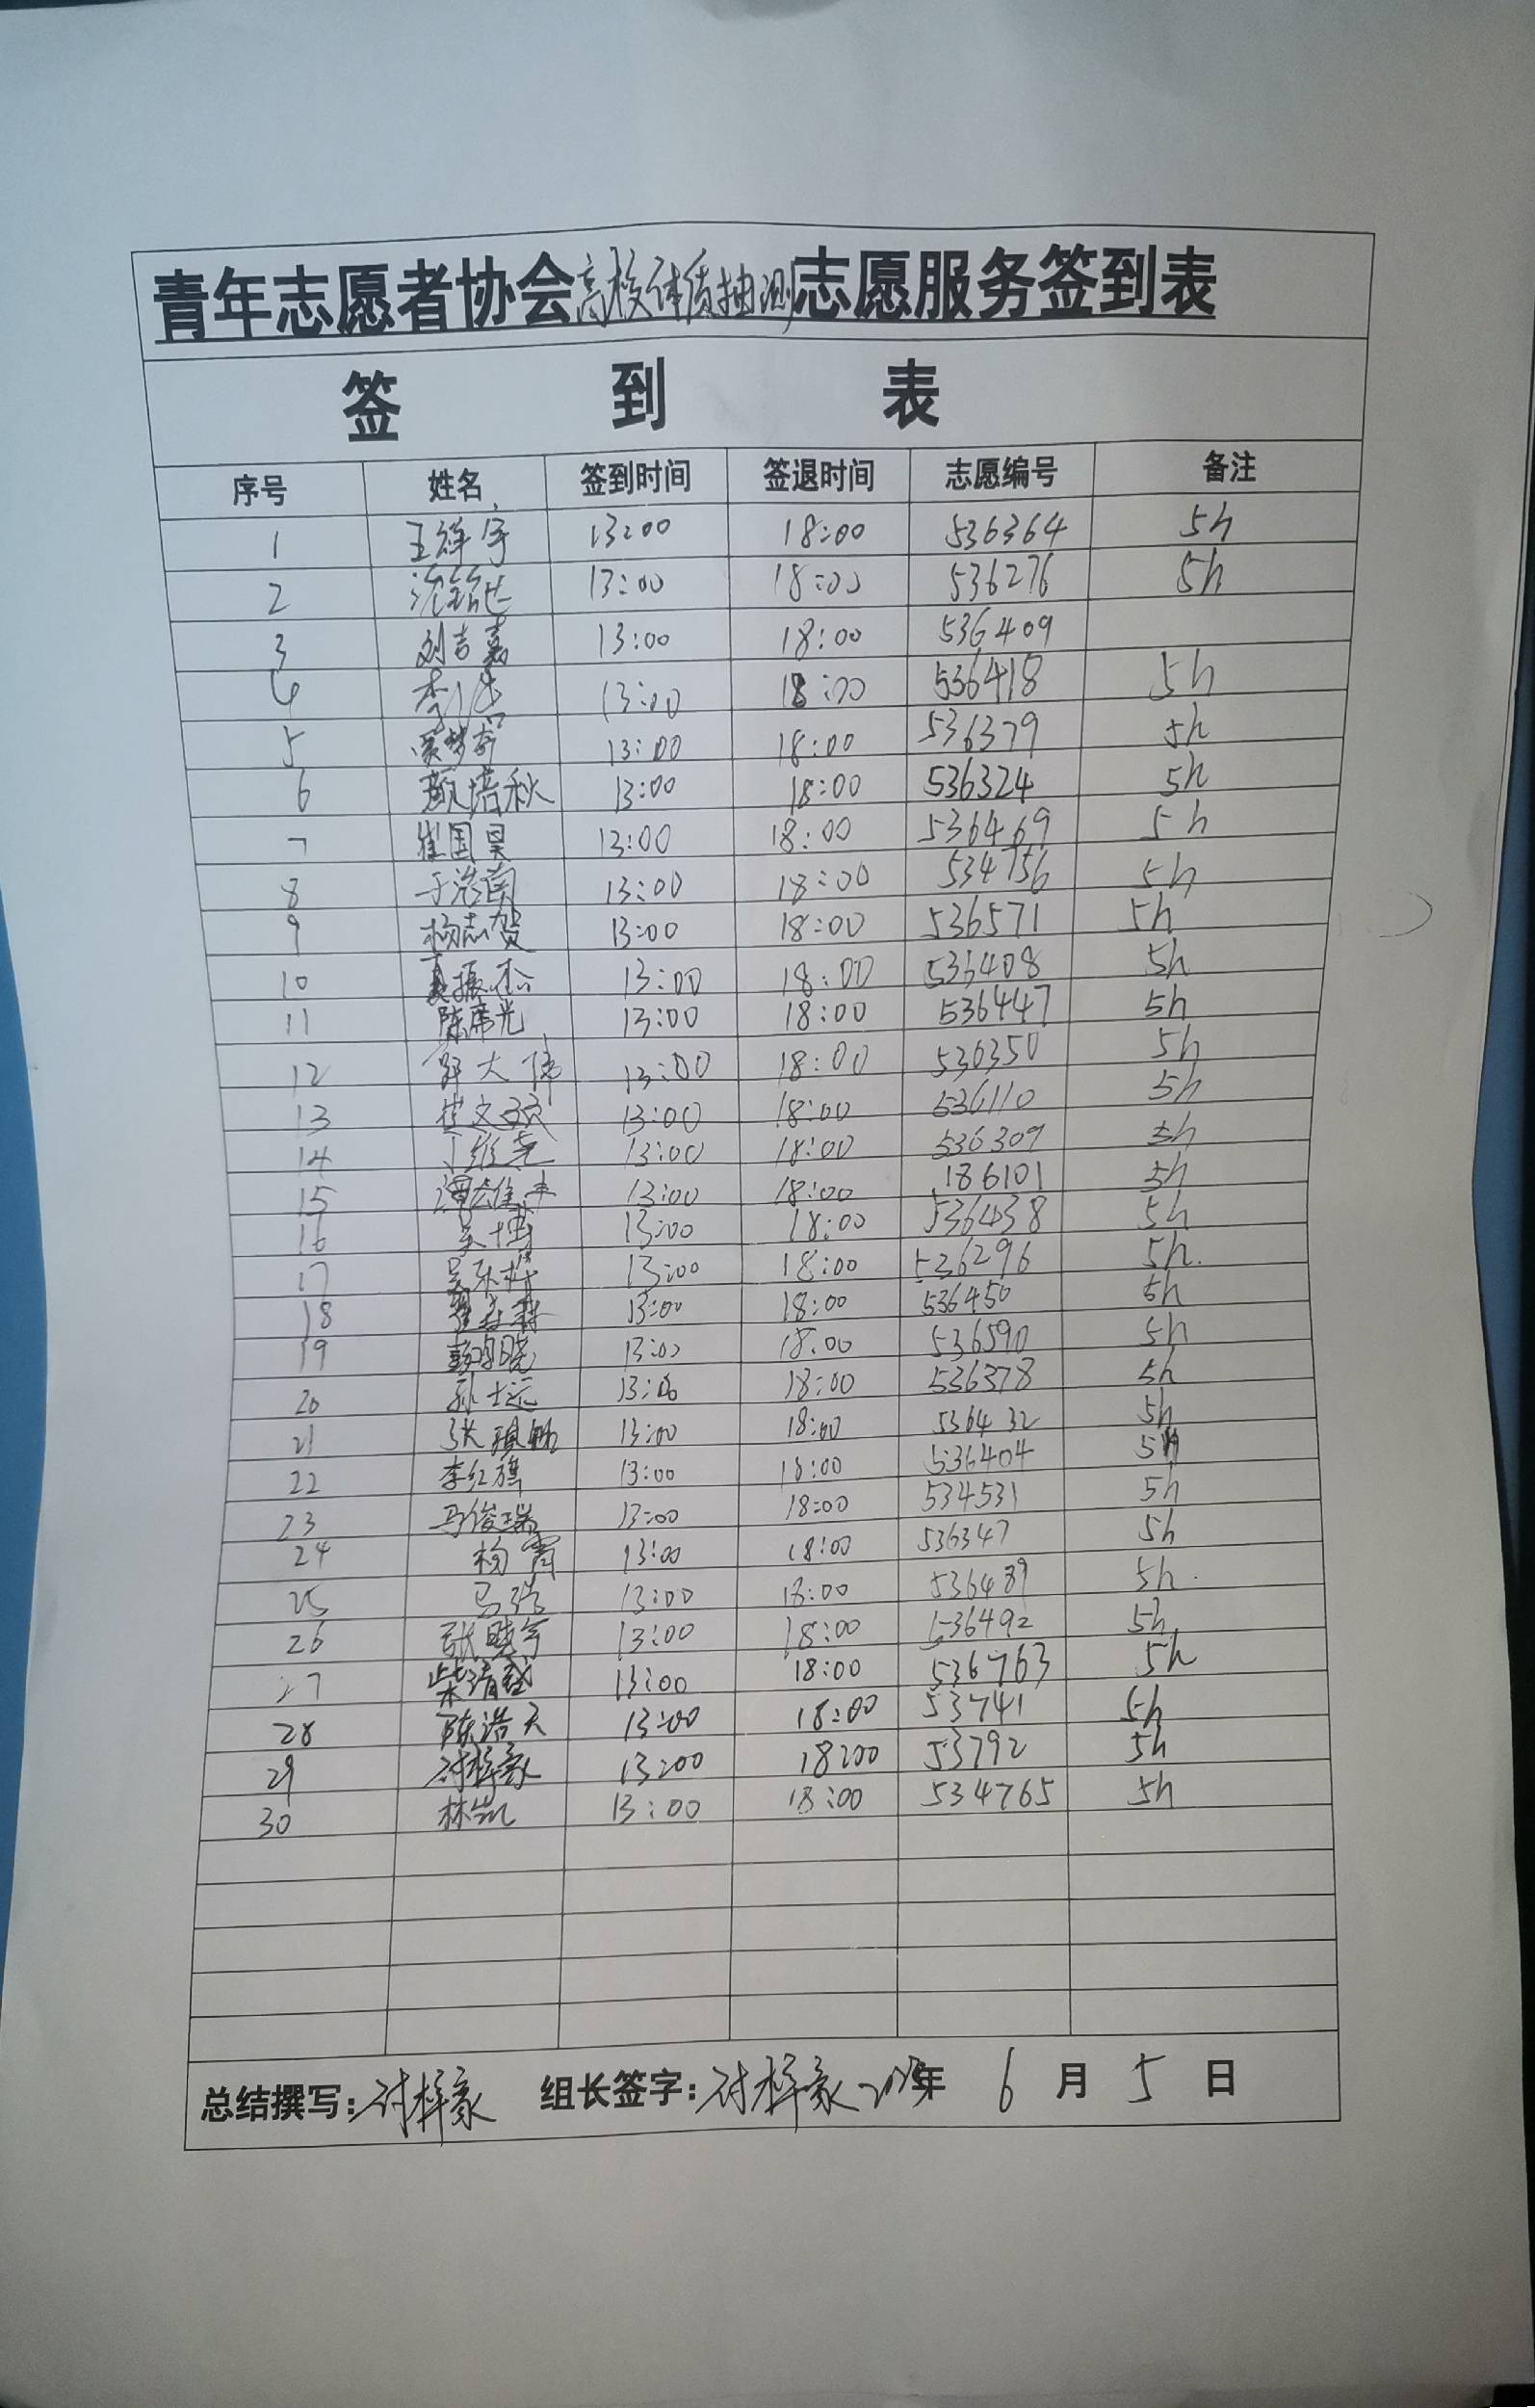 青年志愿者协会高校体质抽测志愿服务签到表
签 到 表
序号 姓名 签到时间 签退时间 志愿编号 备注
1 王祥宇 13:00 18:00 536364 5h
2 13:00 18:00 536276 5h
3 刘吉嘉 13:00 18:00 536409
4 13:00 18:00 536418 5h
5 13:00 18:00 536379 5h
6 颜培秋 13:00 18:00 536324 5h
7 崔国昊 13:00 18:00 536469 5h
8 于浩南 13:00 18:00 534756 5h
9 杨志贺 13:00 18:00 536571 5h
10 13:00 18:00 536408 5h
11 陈席光 13:00 18:00 536447 5h
12 13:00 18:00 536350 5h
13 13:00 18:00 536110 5h
14 丁维尧 13:00 18:00 536309 5h
15 13:00 18:00 186101 5h
16 13:00 18:00 536438 5h
17 13:00 18:00 536296 5h.
18 13:00 18:00 536450 5h
19 13:00 18:00 536590 5h
20 13:00 18:00 536378 5h
21 13:00 18:00 536432 5h
22 李红旗 13:00 18:00 536404 5h
23 马俊瑞 13:00 18:00 534531 5h
24 13:00 18:00 536347 5h
25 13:00 18:00 536489 5h.
26 张晓宇 13:00 18:00 536492 5h
27 柴清盛 13:00 18:00 536763 5h
28 陈浩天 13:00 18:00 53741 5h
29 付梓豪 13:00 18:00 53792 5h
30 林凯 13:00 18:00 534765 5h
总结撰写:付梓豪 组长签字:付梓豪 年 6 月 5 日